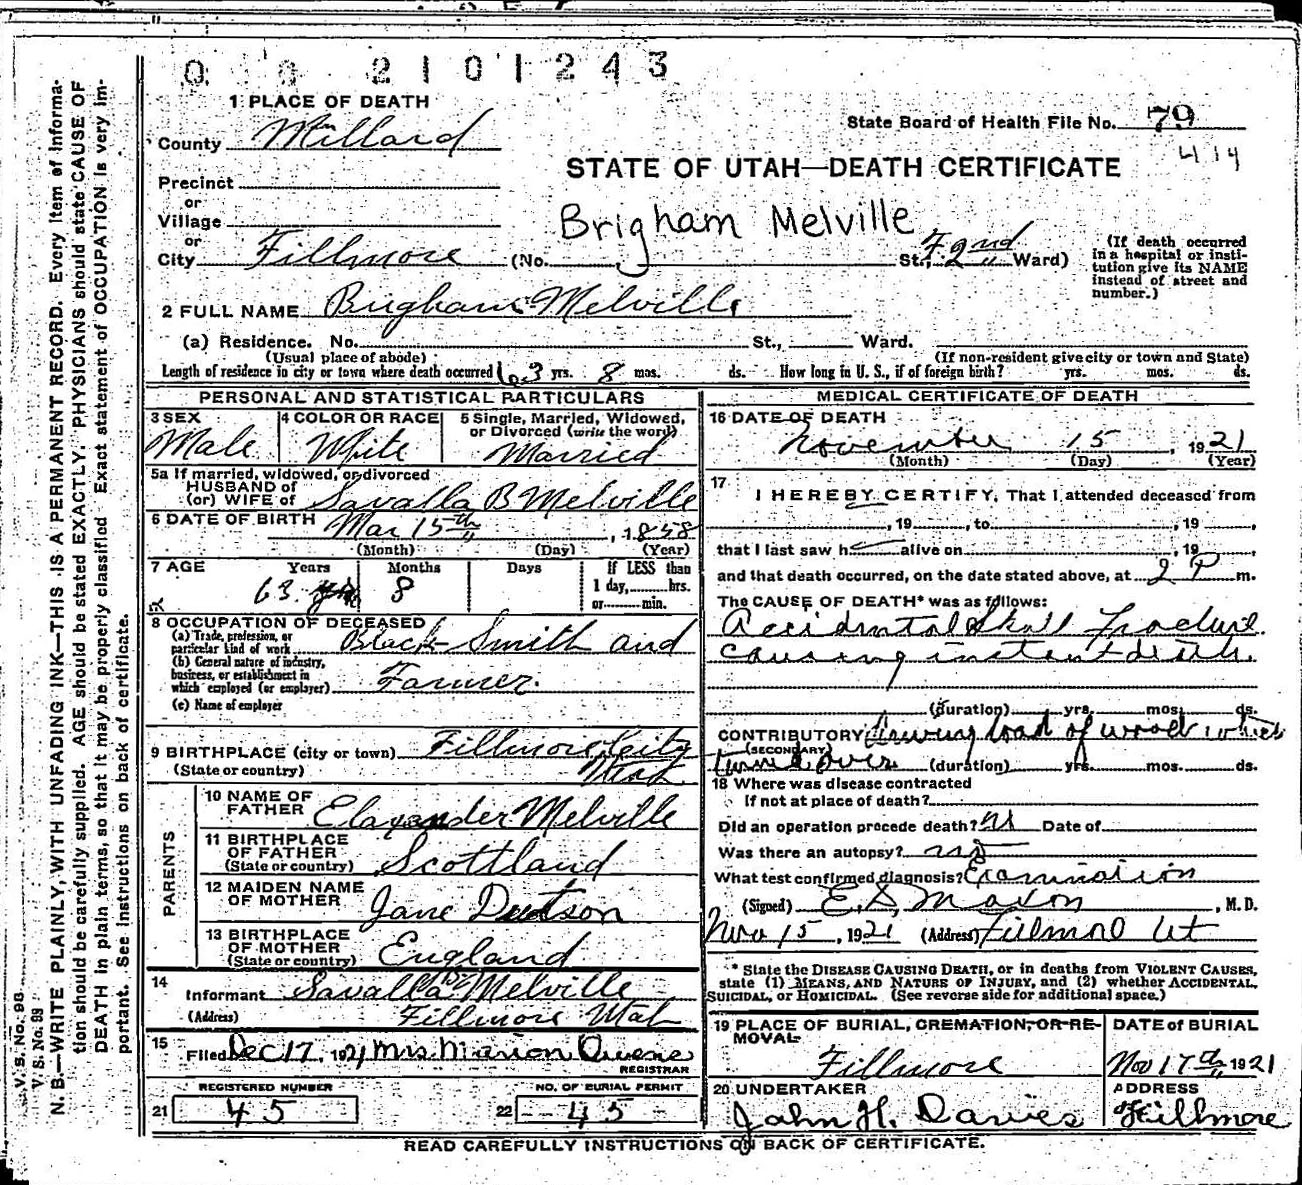 0 8 2101243
1 PLACE OF DEATH
County Millard
State Board of Health File No. 79
414
STATE OF UTAH—DEATH CERTIFICATE
Precinct
or
Village
or
City Fillmore (No. St., F. 2nd Ward)
Brigham Melville
(If death occurred in a hospital or institution give its NAME instead of street and number.)
2 FULL NAME Brigham Melville
(a) Residence. No. St., Ward.
(Usual place of abode) (If non-resident give city or town and State)
Length of residence in city or town where death occurred 63 yrs. 8 mos. ds. How long in U. S., if of foreign birth? yrs. mos. ds.
PERSONAL AND STATISTICAL PARTICULARS
3 SEX Male
4 COLOR OR RACE White
5 Single, Married, Widowed, or Divorced (write the word) Married
5a If married, widowed, or divorced
HUSBAND of
(or) WIFE of Savalla B Melville
6 DATE OF BIRTH Mar 15th, 1858
(Month) (Day) (Year)
7 AGE Years Months Days If LESS than
63 8 1 day, hrs.
or min.
8 OCCUPATION OF DECEASED
(a) Trade, profession, or particular kind of work Black Smith and
(b) General nature of industry, business, or establishment in which employed (or employer) Farmer.
(c) Name of employer
9 BIRTHPLACE (city or town) Fillmore City
(State or country) Utah
PARENTS
10 NAME OF FATHER Elaxander Melville
11 BIRTHPLACE OF FATHER (State or country) Scottland
12 MAIDEN NAME OF MOTHER Jane Dutson
13 BIRTHPLACE OF MOTHER (State or country) England
14 Informant Savalla B Melville
(Address) Fillmore Utah
15 Filed Dec 17, 1921 Mrs. Marion Owens
REGISTRAR
REGISTERED NUMBER
21 45
NO. OF BURIAL PERMIT
22 45
MEDICAL CERTIFICATE OF DEATH
16 DATE OF DEATH
November 15, 1921
(Month) (Day) (Year)
17 I HEREBY CERTIFY, That I attended deceased from
, 19 , to , 19 ,
that I last saw h alive on , 19 ,
and that death occurred, on the date stated above, at 2 P m.
The CAUSE OF DEATH* was as follows:
Accidental Skull Fracture
causing instant death.
(duration) yrs. mos. ds.
CONTRIBUTORY driving load of wood which
(SECONDARY)
turned over (duration) yrs. mos. ds.
18 Where was disease contracted
If not at place of death?
Did an operation precede death? no Date of
Was there an autopsy? no
What test confirmed diagnosis? Examination
(Signed) E. S. Maxon, M. D.
Nov 15, 1921 (Address) Fillmore Ut
* State the DISEASE CAUSING DEATH, or in deaths from VIOLENT CAUSES,
state (1) MEANS, AND NATURE OF INJURY, and (2) whether ACCIDENTAL,
SUICIDAL, or HOMICIDAL. (See reverse side for additional space.)
19 PLACE OF BURIAL, CREMATION, OR REMOVAL
Fillmore
DATE of BURIAL
Nov 17th 1921
20 UNDERTAKER
John H. Davies
ADDRESS
Fillmore
READ CAREFULLY INSTRUCTIONS ON BACK OF CERTIFICATE.
V. S. No. 98
V. S. No. 98
N. B.—WRITE PLAINLY, WITH UNFADING INK—THIS IS A PERMANENT RECORD. Every item of Informa-
tion should be carefully supplied. AGE should be stated EXACTLY. PHYSICIANS should state CAUSE OF
DEATH in plain terms, so that it may be properly classified. Exact statement of OCCUPATION is very im-
portant. See instructions on back of certificate.